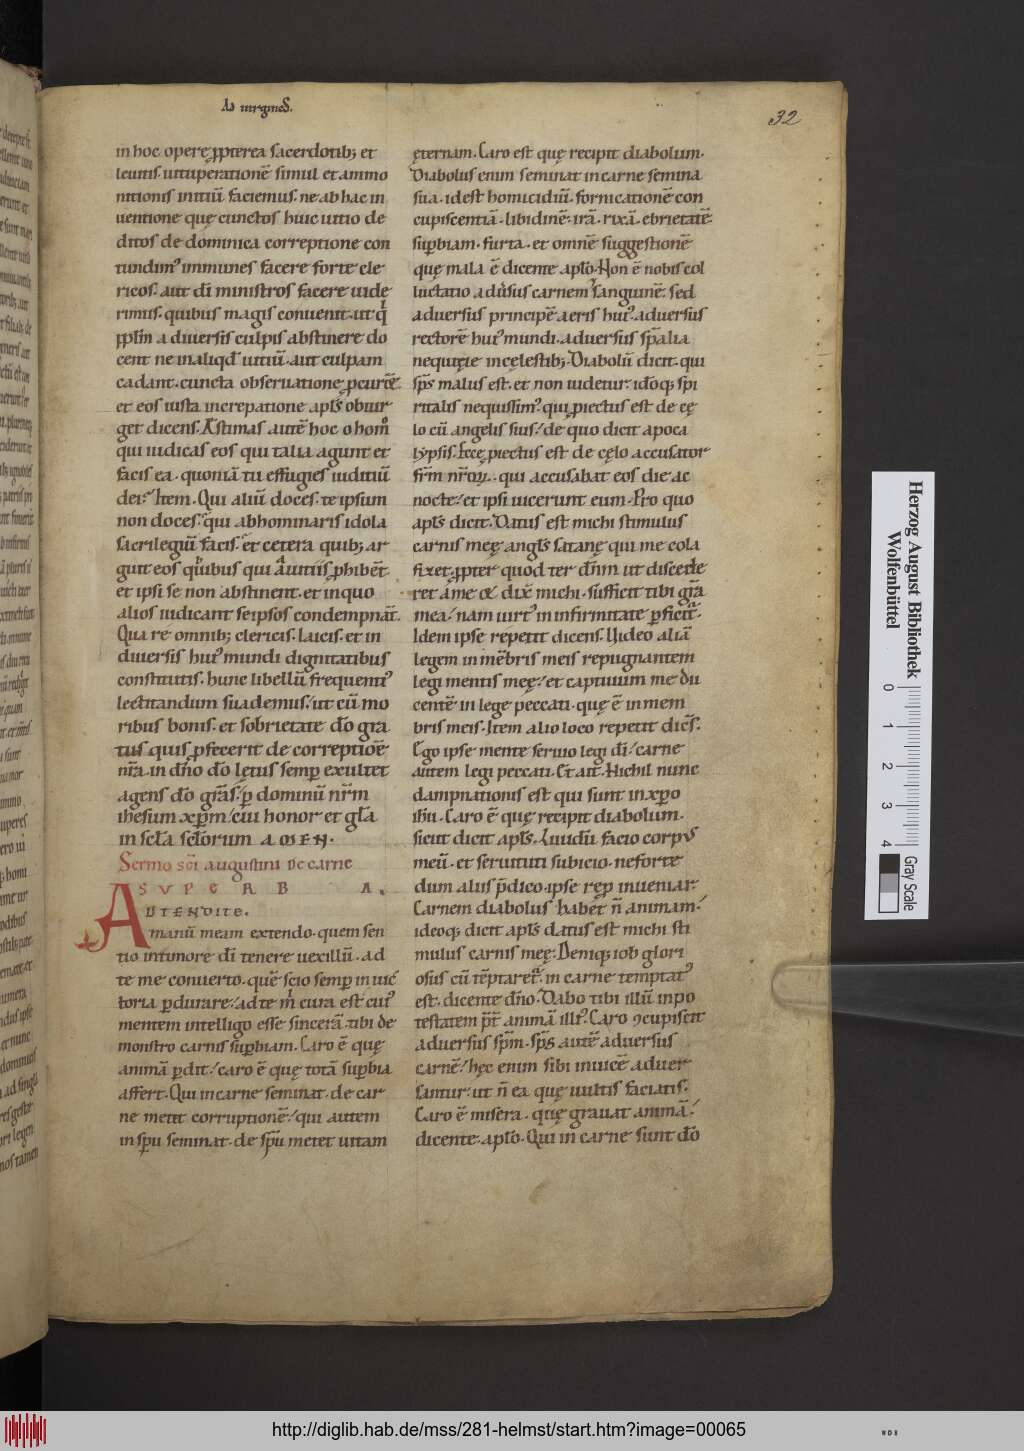 Ad uirgineS.
32
in hoc opere. ꝓpterea sacerdotibꝫ et
leuitis uituperationē simul et ammo
nitionis initiū faciemus. ne ab hac in
uentione quę cunctos huic uitio de
ditos de dominica correptione con
tundimꝰ inmunes facere forte cle
ricos. aut dī ministros facere uide
rimus. quibus magis conuenit. ut
a diuersis culpis abstinere do
cent ne inaliqd uitiū. aut culpam
cadant. cuncta obseruatione ꝓcurēt.
et eos iusta increpatione apłs obiur
get dicens. Ęstimas autē hoc o homo
qui iudicas eos qui talia agunt et
facis ea. quoniā tu effugies iuditiū
dei? Item. Qui aliū doces. te ipsum
non doces. qui abhominaris idola
sacrilegiū facis. et cetera quibꝫ ar
guit eos quibus qui a uitiis ꝓhibēt.
et ipsi se non abstinent. et in quo
alios iudicant seipsos condempnāt.
Qua re omnibꝫ clericis. laicis. et in
diuersis huiꝰ mundi dignitatibus
constitutis. hunc libellū frequentiꝰ
lectitandum suademus. ut cū mo
ribus bonis. et sobrietate dō gra
tus quis ꝓfecerit de correptiōe
nr̄a. in dn̄o dō lętus semꝑ exultet
agens dō grās. ꝑ dominū nr̄m
ihesum xp̄m. cui honor et glā
in scła scłorum AMEN.
Sermo sci augustini de carne
SVPERBA.
AD TE NDITE.
manū meam extendo. quem sen
tio intimore dī tenere uexillū. ad
te me conuerto. quē scio semꝑ in uic
toria ꝑdurare. ad te m cura est cuiꝰ
mentem intelligo esse sincerā. tibi de
monstro carnis suꝑbiam. Caro ē quę
animā ꝑdit. caro ē quę totā suꝑbia
affert. Qui in carne seminat. de car
ne metit corruptionē. qui autem
in sp̄u seminat. de sp̄u metet uitam
ęternam. Caro est quę recipit diabolum.
Diabolus enim seminat in carne semina
sua. idest homicidiū. fornicationē con
cupiscentiā. libidinē. irā. rixā. ebrietatē
suꝑbiam. furta. et omnē suggestionē
quę mala ē dicente apłō. Non ē nobis col
luctatio aduersus carnem sanguinē. sed
aduersus principē aeris huiꝰ. aduersus
rectorē huiꝰ mundi. aduersus sp̄alia
nequitię in celestibꝫ. Diabolū dicit. qui
sp̄s malus est. et non uidetur. idōqꝫ sp̄i
ritalis nequissimꝰ qui ꝓiectus est de cę
lo cū angelis suis. de quo dicit apoca
lypsis. Ecce ꝓiectus est de cęlo accusator
fr̄m nr̄oꝝ. qui accusabat eos die ac
nocte. et ipsi uicerunt eum. Pro quo
apłs dicit. Datus est michi stimulus
carnis meę angłs satanę qui me cola
fizet. ꝓpter quod ter dn̄m ut discede
ret a me. dix̄ michi. sufficit tibi gr̄a
mea. nam uirtꝰ in infirmitate ꝑficitꝰ.
Idem ipse repetit dicens. Uideo aliā
legem in mēbris meis repugnantem
legi mentis meę. et captiuum me du
centē in lege peccati. quę ē in mem
bris meis. Item alio loco repetit dicēs.
Ego ipse mente seruio legi dī. carne
autem legi peccati. Et ait. Nichil nunc
dampnationis est qui sunt in xp̄o
ihū. Caro ē quę recipit diabolum.
sicut dicit apłs. Liuidū facio corpꝰ
meū. et seruituti subicio. ne forte
dum aliis p̄dico. ipse reꝑ inueniar.
Carnem diabolus habet n̄ animam.
ideoqꝫ dicit apłs datus est michi sti
mulus carnis meę. Deniqꝫ iob glori
osus cū tēptaret. in carne temptatꝰ
est. dicente dn̄o. Dabo tibi illū in po
testatem animā illiꝰ. Caro ꝯcupiscit
aduersus sp̄m. sp̄s autē aduersus
carnē. hęc enim sibi inuicē aduer
santur. ut n̄ ea quę uultis faciatis.
Caro ē misera. quę grauat animā.
dicente. apłō. Qui in carne sunt dō
Herzog August Bibliothek
Wolfenbüttel
0 1 2 3 4
Gray Scale
http://diglib.hab.de/mss/281-helmst/start.htm?image=00065
WDB